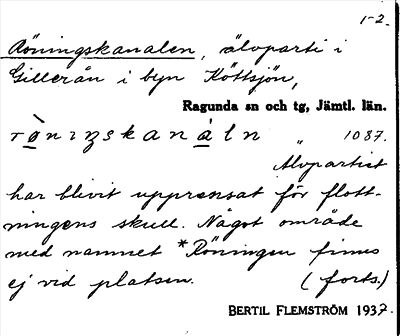 1-2.
Röningskanalen, älvparti i
Gillerån i byn Köttsjön,
Ragunda sn och tg, Jämtl. län.
rö̀nıŋskanáln 1087.
Älvpartiet
har blivit upprensat för flott-
ningens skull. Något område
med namnet *Röningen finns
ej vid platsen. (forts.)
BERTIL FLEMSTRÖM 1937.